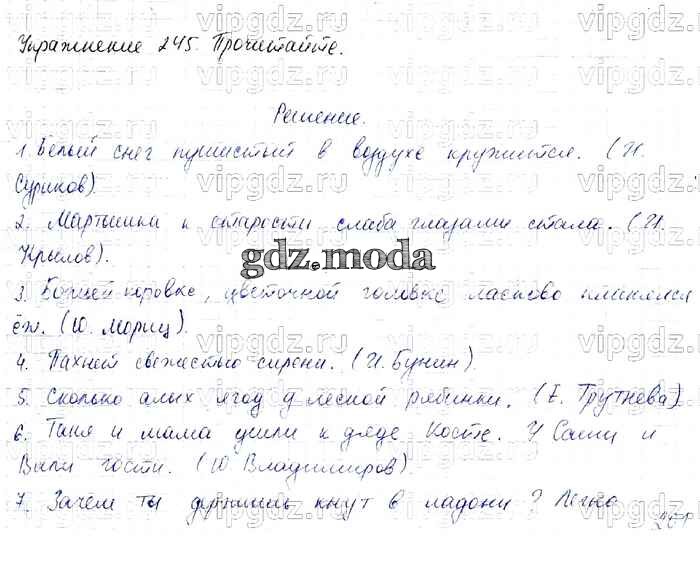 Упражнение 245. Прочитайте.
Решение.
1. Белый снег пушистый в воздухе кружится. (И.
Суриков).
2. Мартышка к старости слаба глазами стала. (И.
Крылов).
gdz.moda
3. Божьей коровке, цветочной головке ласково кланялся
ёж. (Ю. Мориц).
4. Пахнет свежестью сирени. (И. Бунин).
5. Сколько алых ягод у лесной рябинки. (Е. Трутнева)
6. Таня и мама ушли к дяде Косте. У Саши и
Вали гости. (Ю Владимиров).
7. Зачем ты держишь кнут в ладони? Легко
261
vipgdz.ru